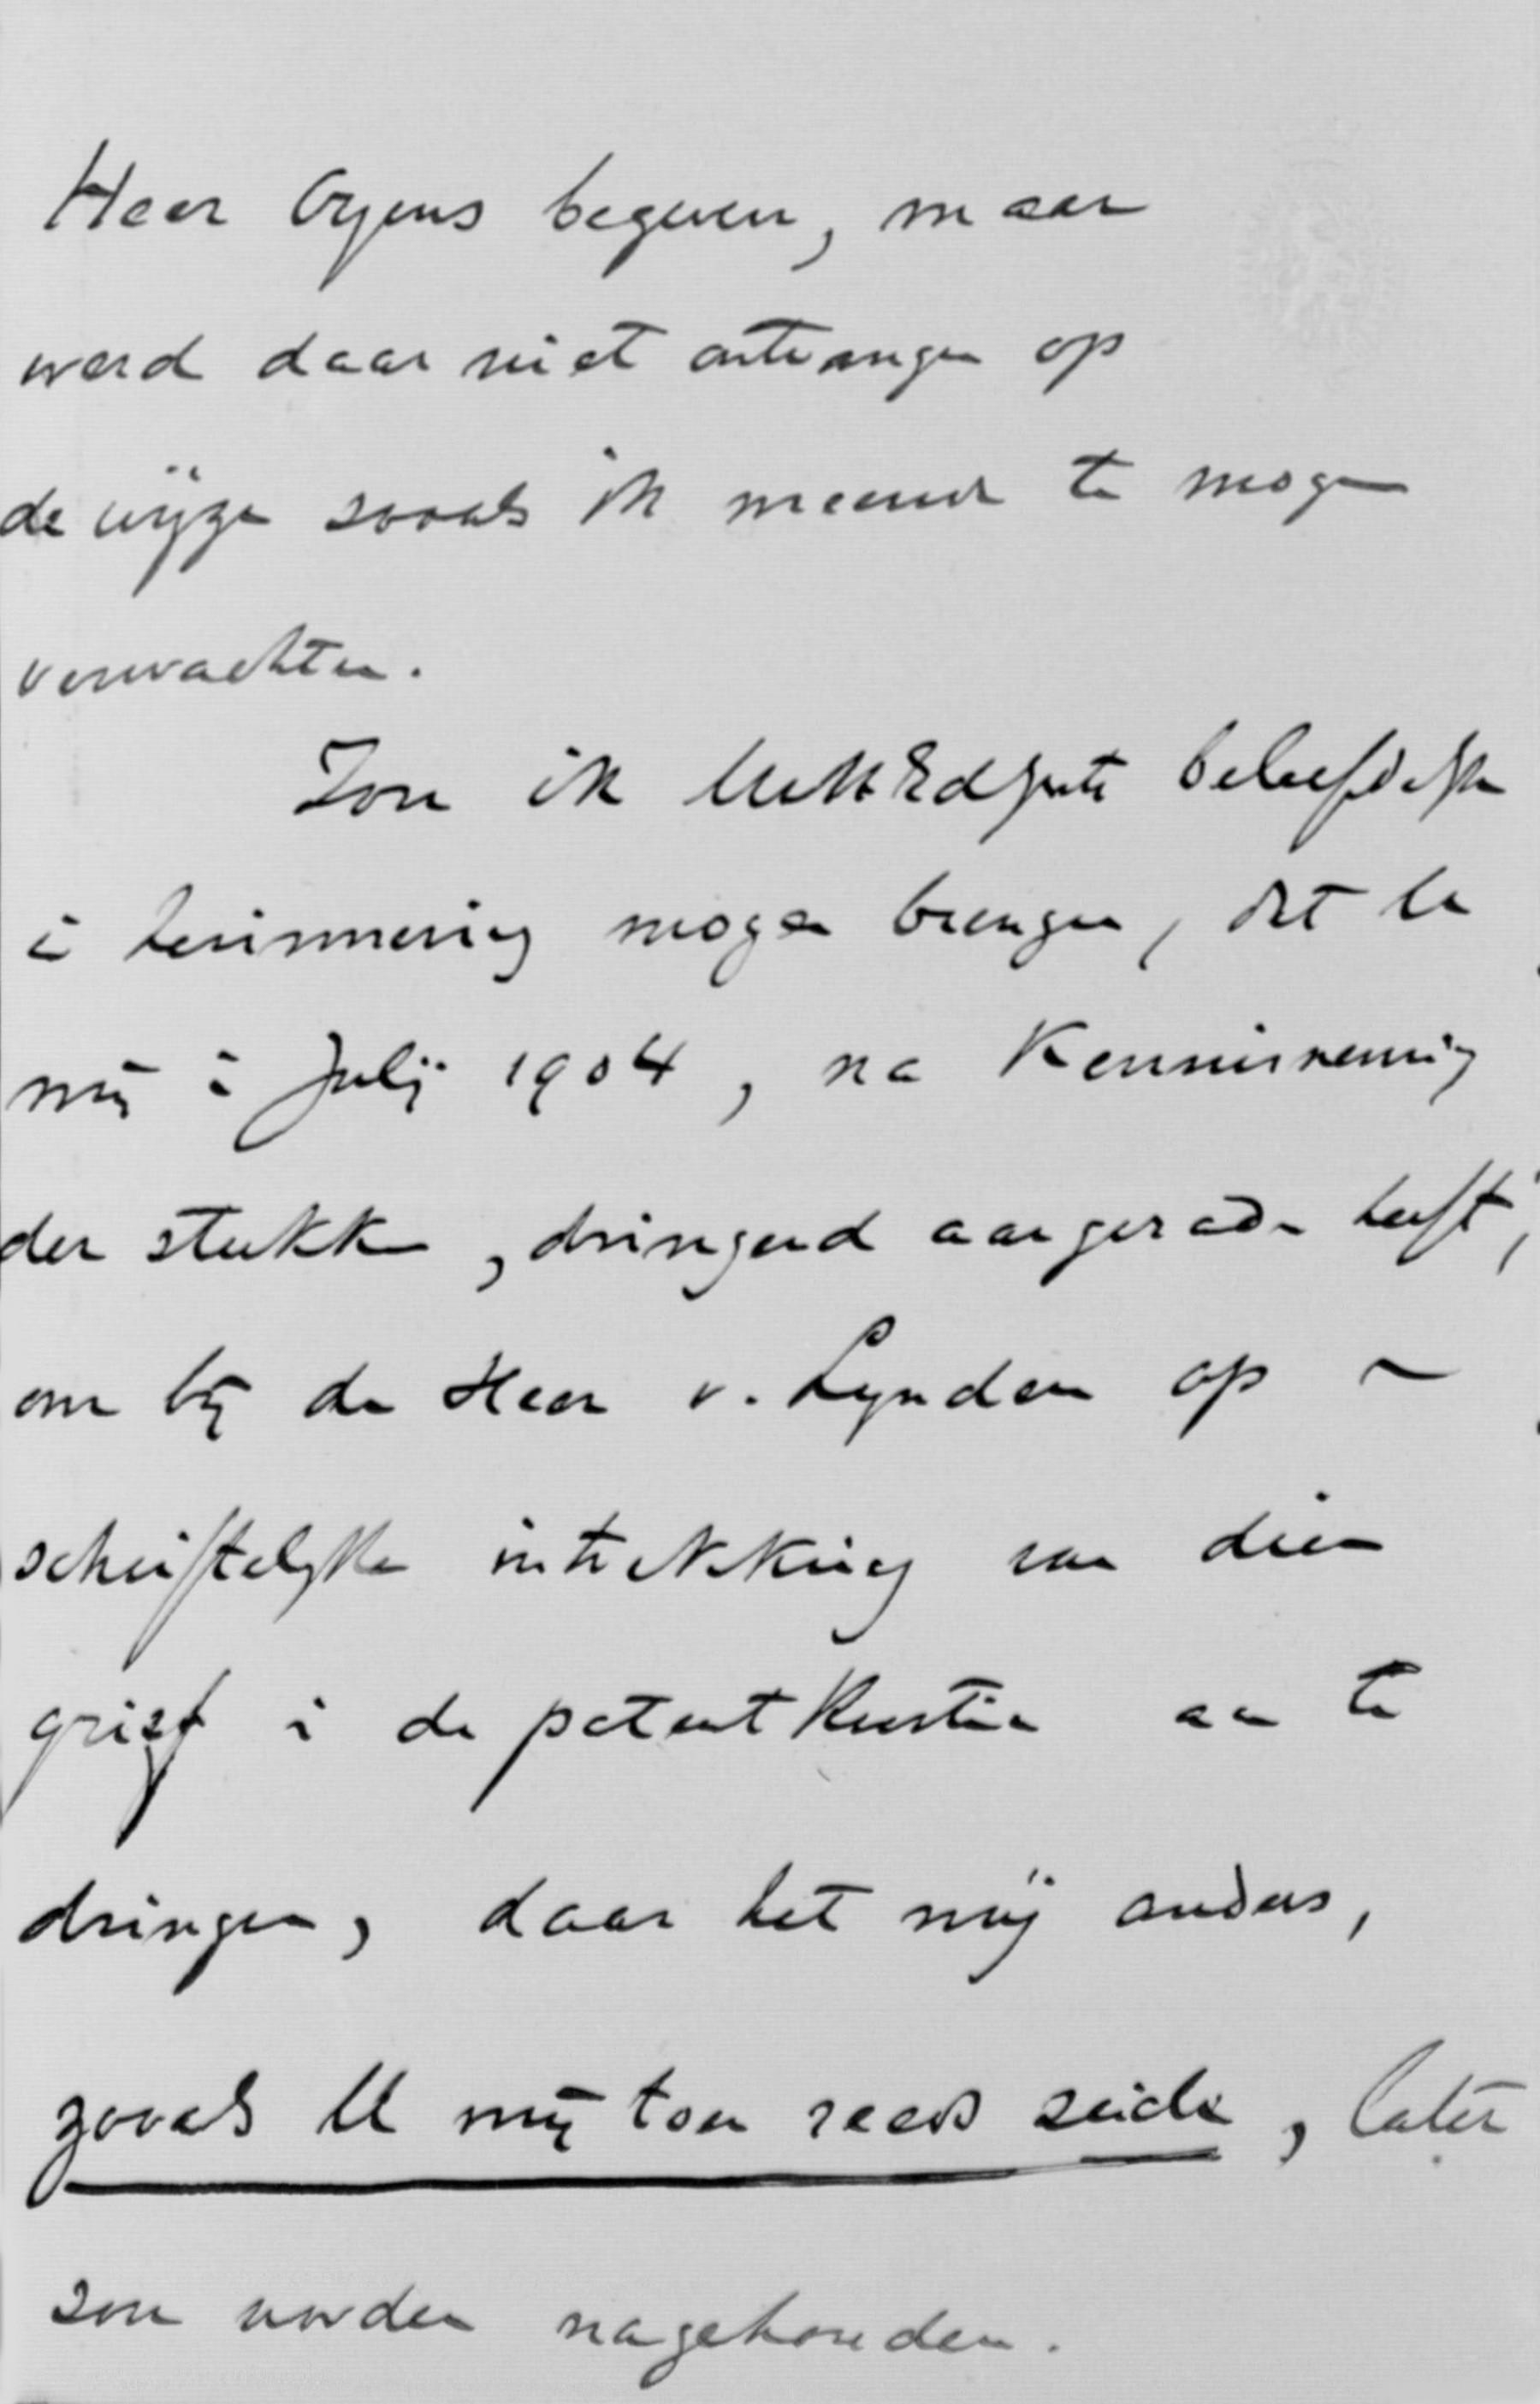 Heer Oyens begeven, maar
werd daar niet ontvangen op
de wijze zooals ik meende te mogen
verwachten.
Zou ik UwHEdGeste beleefdelijk
in herinnering mogen brengen, dat U
mij in Julij 1904, na kennisneming
der stukken, dringend aangeraden heeft,
om bij den Heer v. Lynden op een
schriftelijke intrekking van dien
grief in de patentkwestie aan te
dringen, daar het mij anders,
zooals U mij toen reeds zeide, later
zou worden nagehouden.